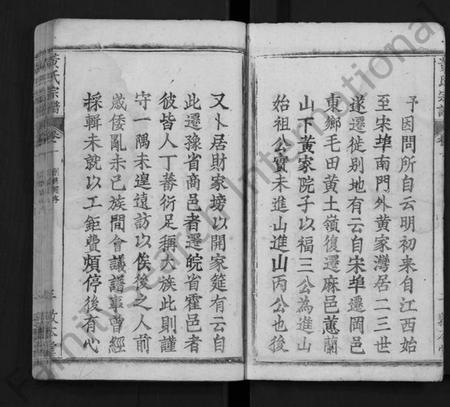 予因問所自云明初來自江西始
至宋埠南門外黄家灣居二三世
遂遷徙别地有云自宋埠遷岡邑
東鄉毛田黄土嶺復遷麻邑蕙蘭
山下黄家院子以福三公為進山
始祖公實未進山進山丙公也後
又卜居財家塝以開家筵有云自
此遷豫省商邑者遷皖省霍邑者
彼皆人丁蕃衍足稱大族此則謹
守一隅未遑遠訪以俟後之人前
歲倭亂未已族間會議譜事曾經
採輯未就以工鉅費頗停後有心
黄氏宗譜
卷一
Family Search International